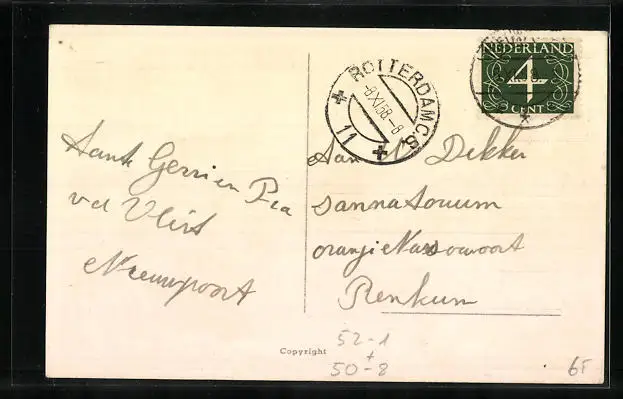 Tante Gerri en Pia
vd Vlist
Nieuwpoort
ROTTERDAM C.S.
-8.XI.58.-8
11
NEDERLAND
4
CENT
Aan Dekker
sannatorium
oranje Nassauoort
Renkum
52-1
+
50-8
Copyright
6F